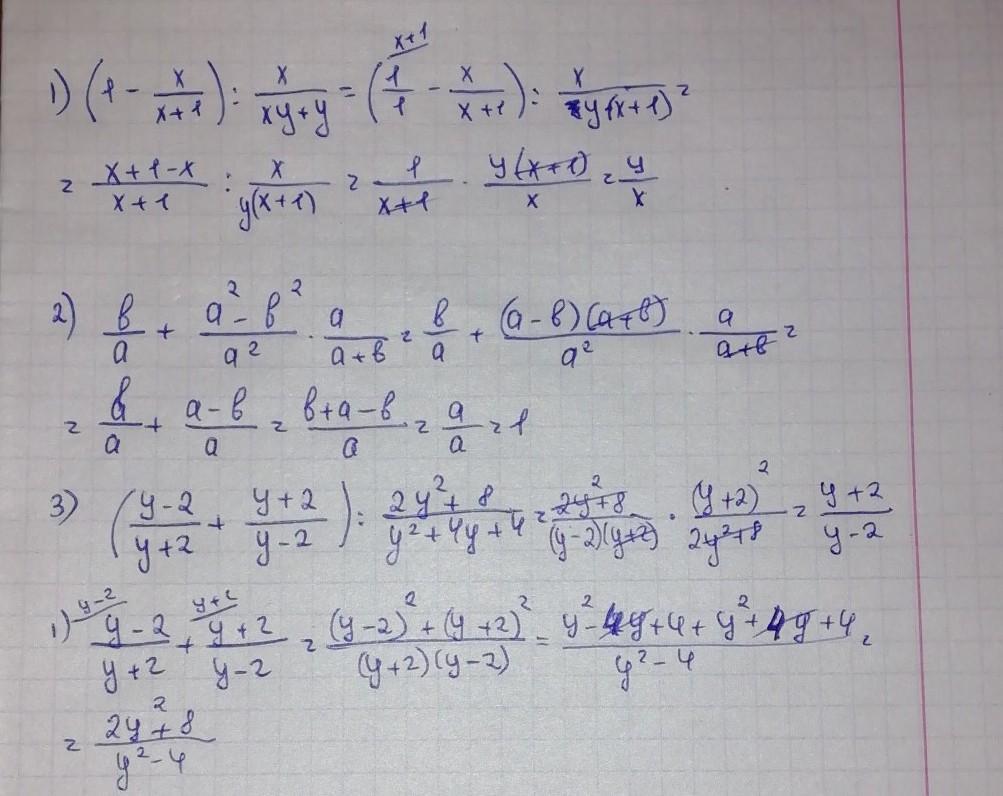 1) (1 - x/(x+1)) : x/(xy+y) = ((x+1)/ 1/1 - x/(x+1)) : x/(y(x+1)) =
= (x+1-x)/(x+1) : x/(y(x+1)) = 1/(x+1) · y(x+1)/x = y/x
2) в/a + (a²-в²)/a² · a/(a+в) = в/a + (a-в)(a+в)/a² · a/(a+в) =
= в/a + (a-в)/a = (в+a-в)/a = a/a = 1
3) ((y-2)/(y+2) + (y+2)/(y-2)) : (2y²+8)/(y²+4y+4) = (2y²+8)/((y-2)(y+2)) · (y+2)²/(2y²+8) = (y+2)/(y-2)
1) y-2/ (y-2)/(y+2) + y+2/ (y+2)/(y-2) = ((y-2)²+(y+2)²)/((y+2)(y-2)) = (y²-4y+4+y²+4y+4)/(y²-4) =
= (2y²+8)/(y²-4)